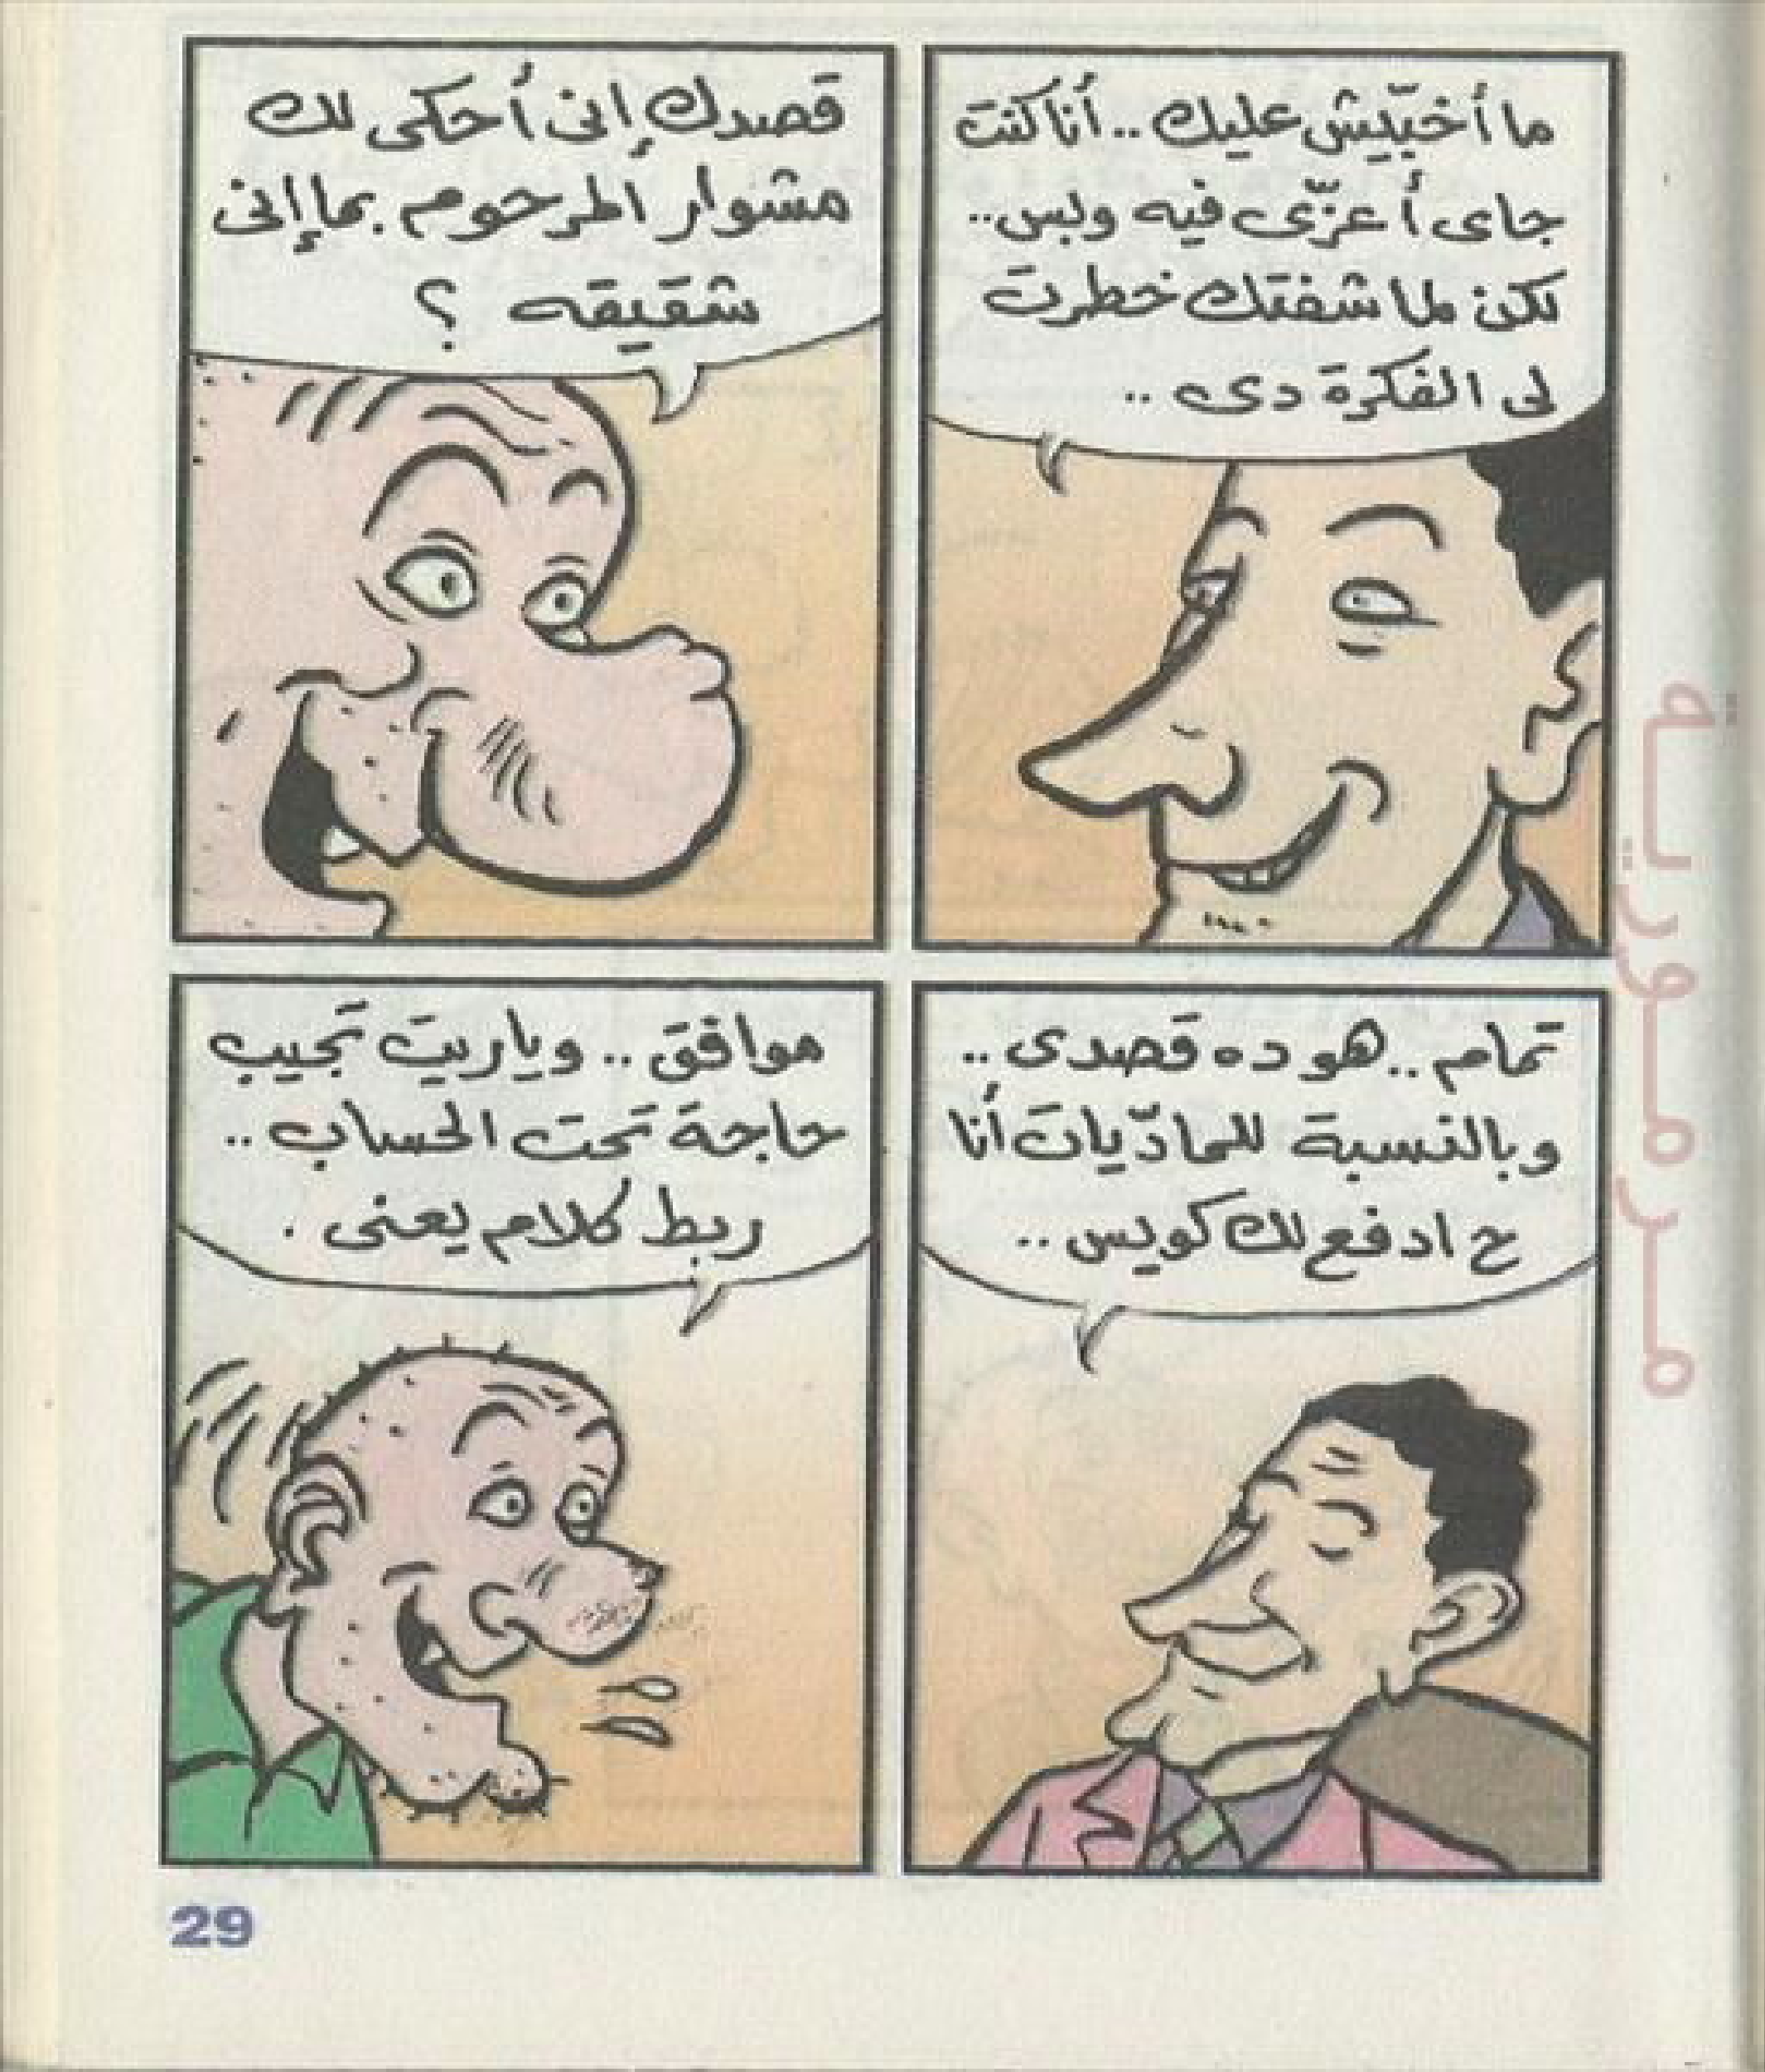 ما أخبّيش عليك .. أنا كنت
جاى أعزّى فيه وبس ..
لكن لما شفتك خطرت
لى الفكرة دى ..
قصدك إنى أحكى لك
مشوار المرحوم بما إنى
شقيقه ؟
تمام .. هو ده قصدى ..
وبالنسبة للماديّات أنا
ح ادفع لك كويس ..
موافق .. وياريت تجيب
حاجة تحت الحساب ..
ربط كلام يعنى .
29
مرمورية